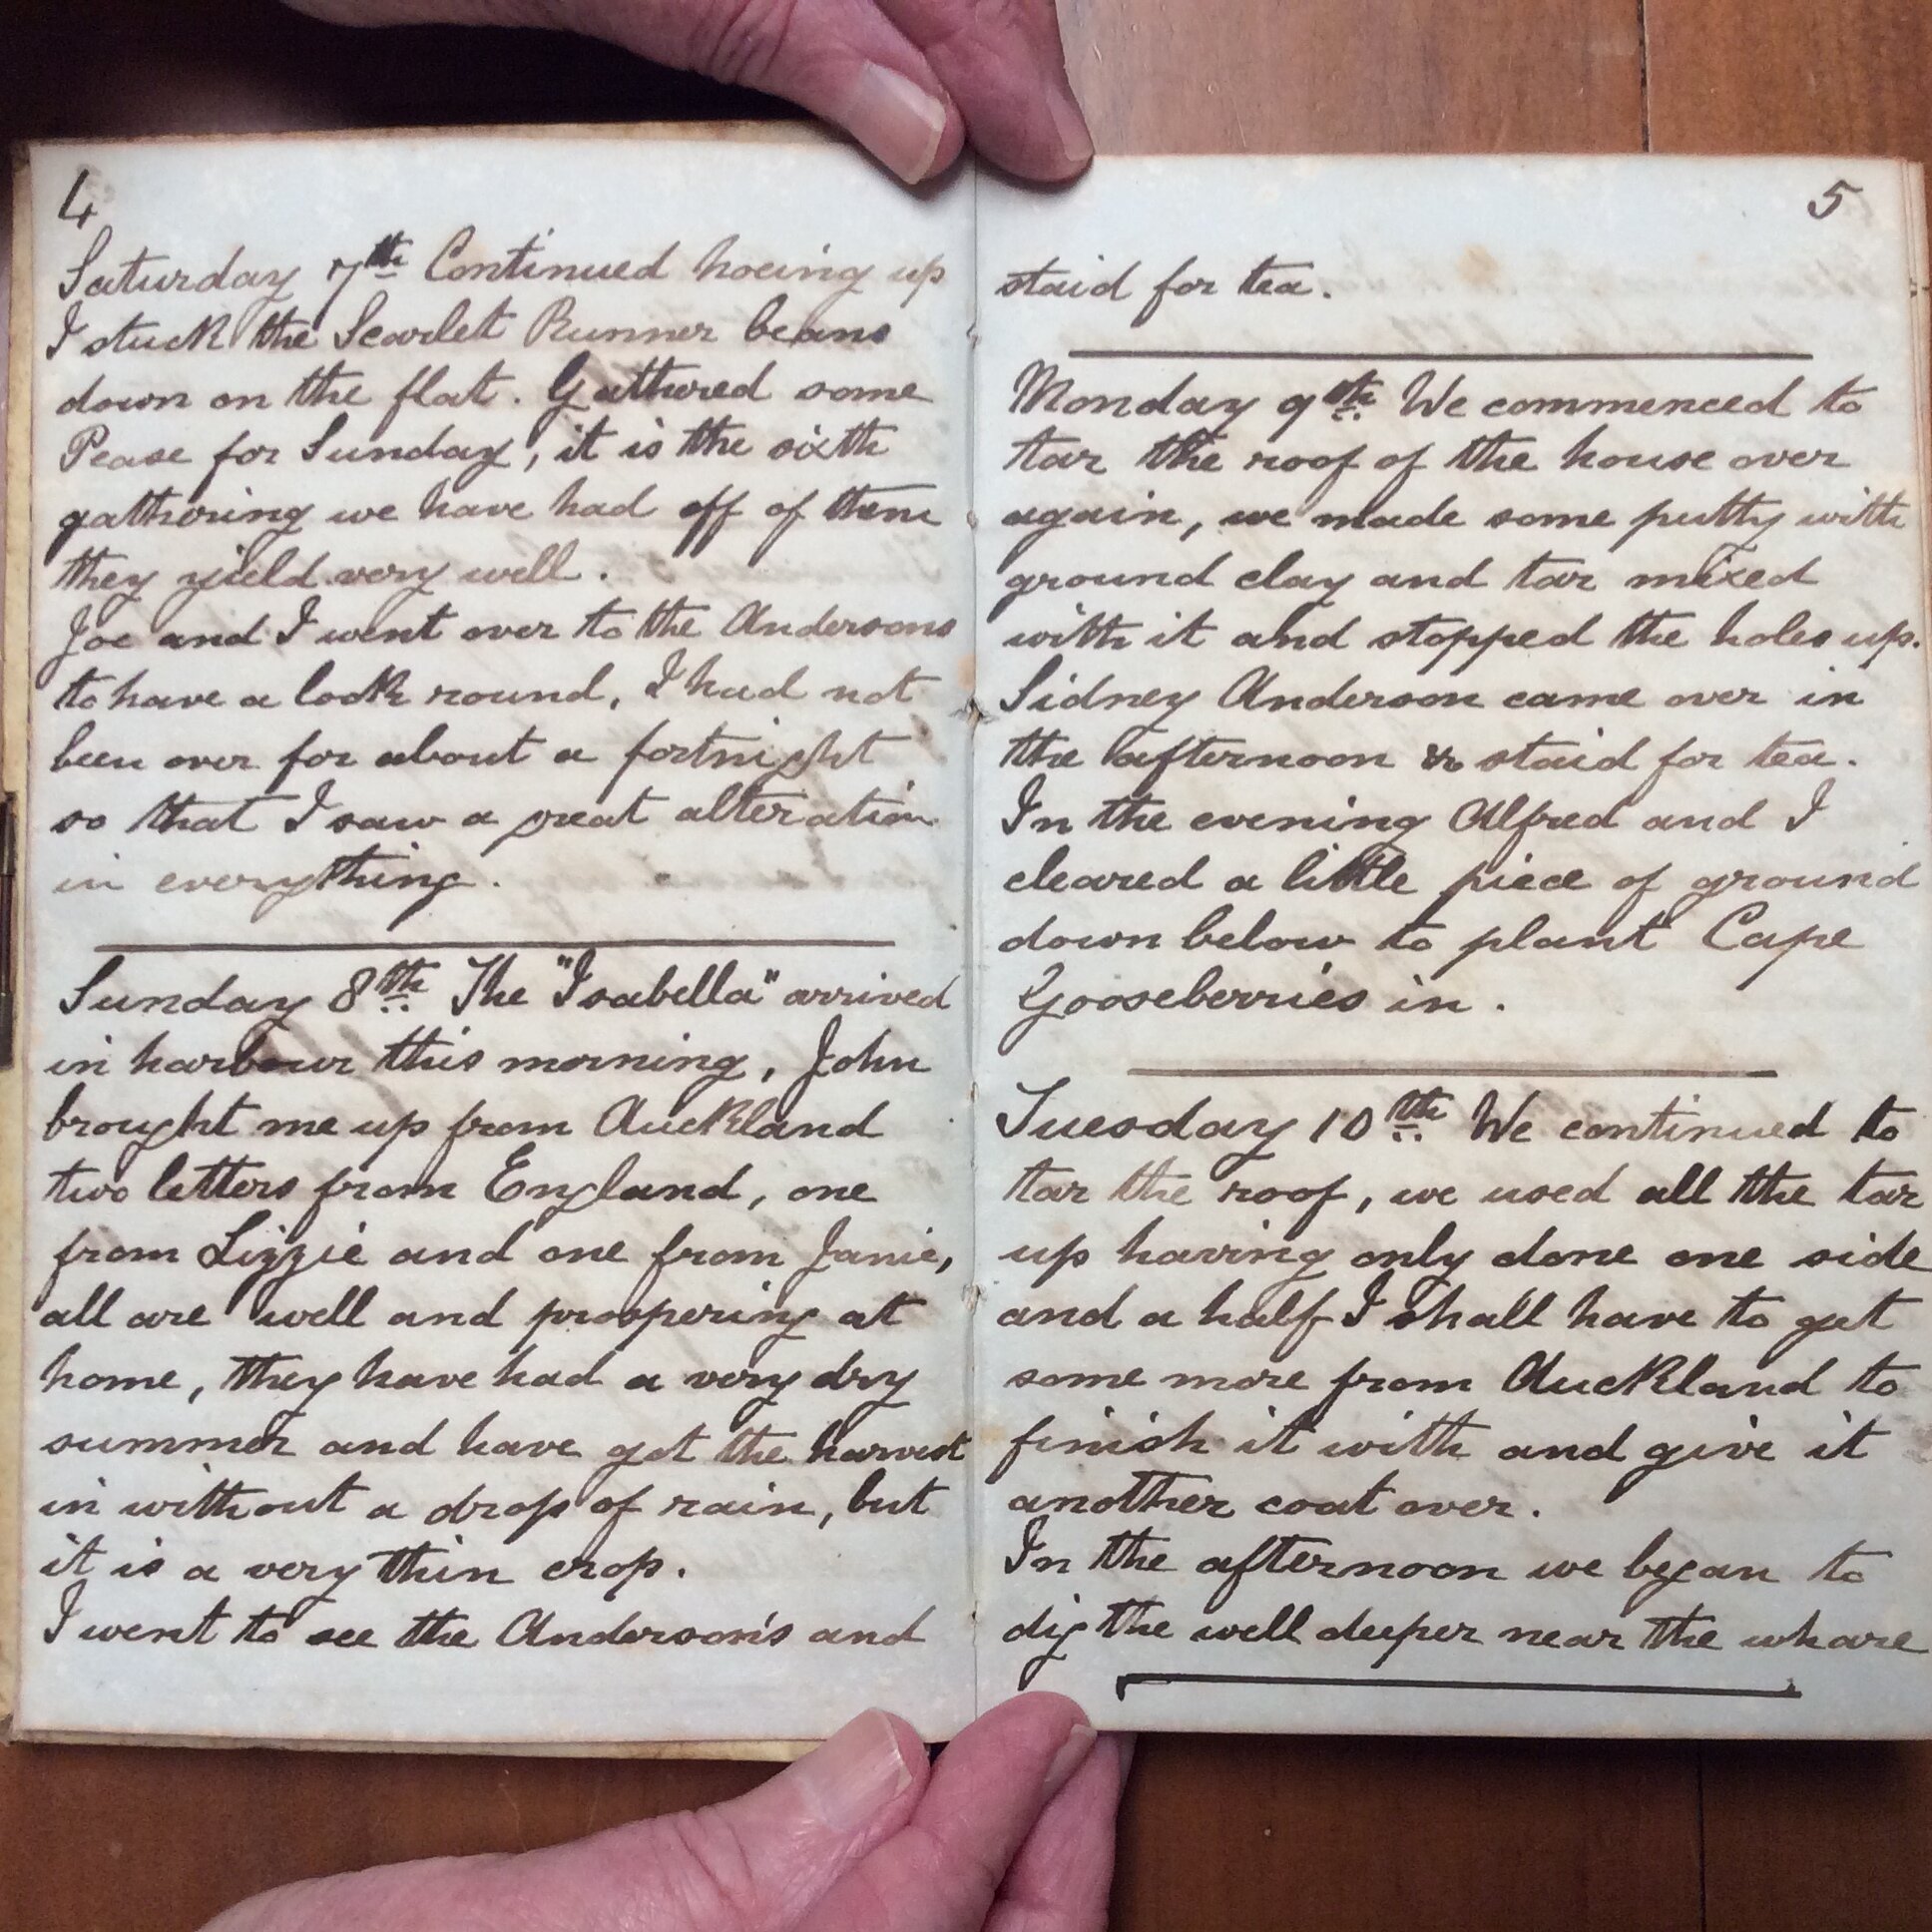 4
Saturday 7th Continued hoeing up
I stuck the Scarlet Runner beans
down on the flat. Gathured some
Pease for Sunday, it is the sixth
gathering we have had off of them
they yield very well.
Joe and I went over to the Andersons
to have a look round, I had not
been over for about a fortnight
so that I saw a great alteration
in everything.
Sunday 8th The "Isabella" arrived
in harbour this morning, John
brought me up from Auckland
two letters from England, one
from Lizzie and one from Janie,
all are well and prospering at
home, they have had a very dry
summer and have got the harvest
in without a drop of rain, but
it is a very thin crop.
I went to see the Anderson's and
5
staid for tea.
Monday 9th We commenced to
tar the roof of the house over
again, we made some putty with
ground clay and tar mixed
with it and stopped the holes up.
Sidney Anderson came over in
the afternoon & staid for tea.
In the evening Alfred and I
cleared a little piece of ground
down below to plant Cape
Gooseberries in.
Tuesday 10th We continued to
tar the roof, we used all the tar
up having only done one side
and a half I shall have to get
some more from Auckland to
finish it with and give it
another coat over.
In the afternoon we began to
dig the well deeper near the whare